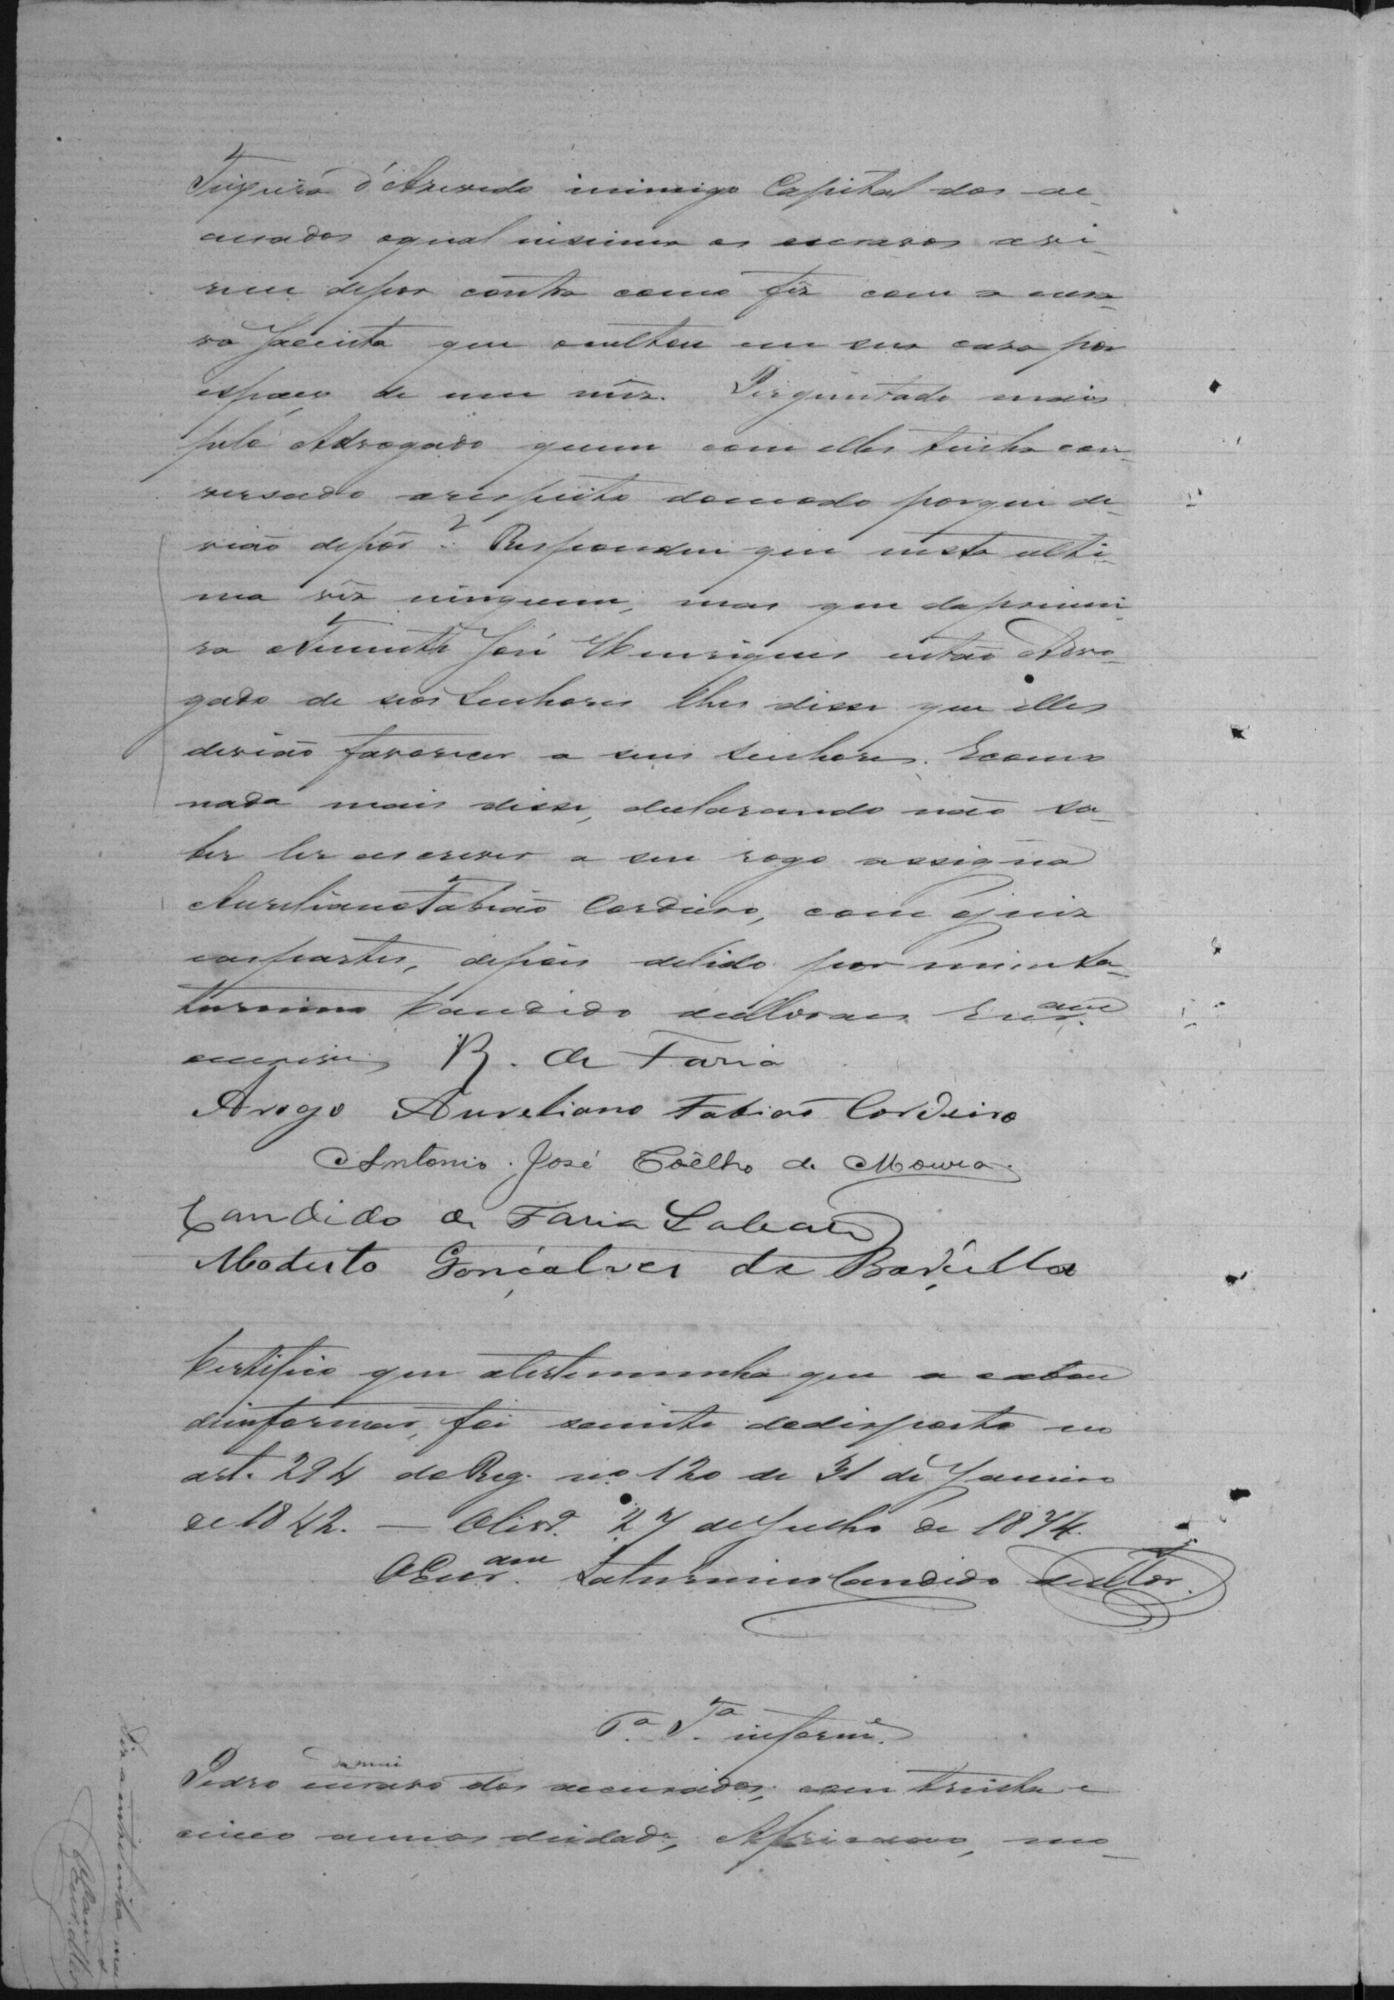 Teixeira d'Azevedo inimigo Capital dos ac-
cusados oqual insinua os escravos a vi-
rem depor contra como fêz com a escra-
va Jacinta que ocultou em sua casa por
espaço de um mêz. Perguntado mais
pelo Advogado quem com elles tinha con-
versado arespeito domodo porque de-
vião depôr? Respondeu que nesta ulti-
ma vêz ninguem, mas que daprimei-
ra José Henriques então Advo-
gado de seos Senhores lhes disse que elles
devião favorecer a seus Senhores. Ecomo
nada mais disse, declarando não sa-
ber ler escrever a seu rogo assigna
Aureliano Fabião Cordeiro, com ojuiz
easpartes, depois delido por mim Sa-
turnino Candido Escr.am
escrevi, R. de Faria
Arogo Aureliano Fabião Cordeiro
Antonio José Coêlho de Moura
Candido de Faria Lobato
Modesto Gonçalves de
Certifico que atestemunha que a cabou
deinformar, foi sciente dodisposto no
art. 294 do Reg. nº 120 de 31 de Janeiro
de 1842. — Olivrª 27 deJulho de 1874.
OEscr.am Saturnino Candido
Tª informe.
Pedro escravo dos accusados, com trinta e
cinco annos deidade, Africano, mo-